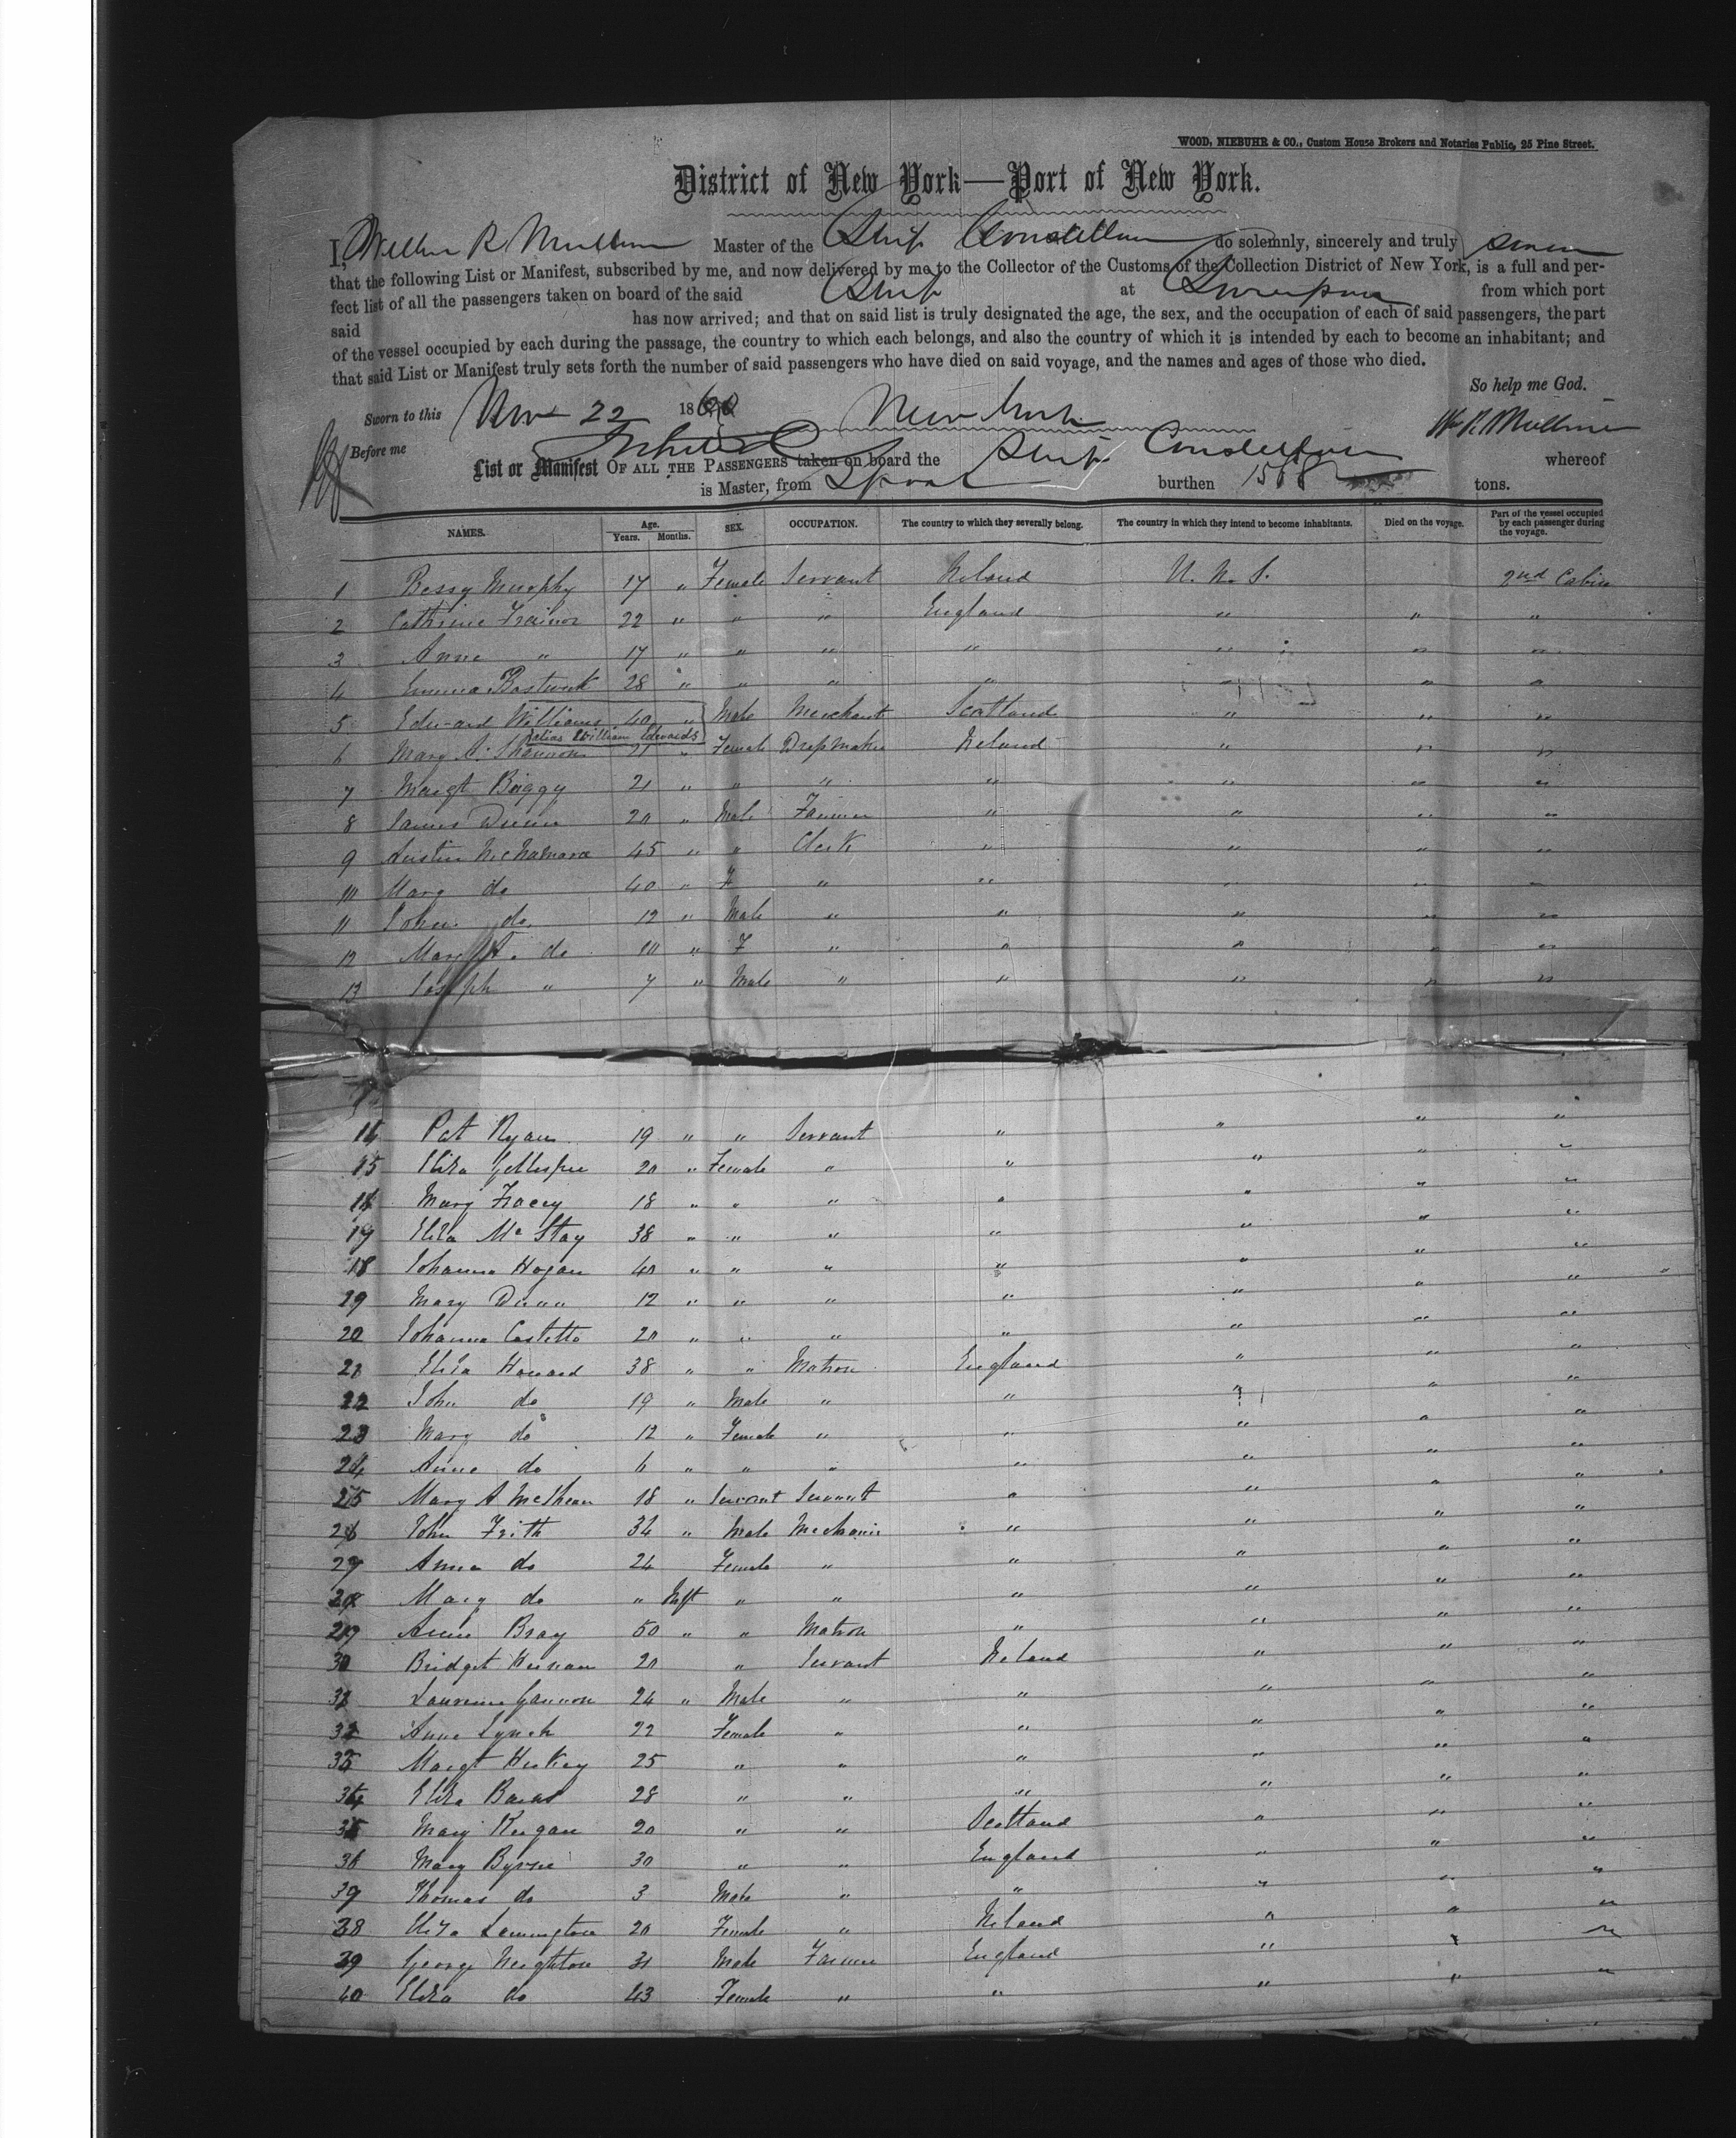 WOOD, NIEBUHR & CO., Custom House Brokers and Notaries Public, 25 Pine Street.
District of New York—Port of New York.
I, R Master of the Ship Constellation do solemnly, sincerely and truly swear
that the following List or Manifest, subscribed by me, and now delivered by me to the Collector of the Customs of the Collection District of New York, is a full and per-
fect list of all the passengers taken on board of the said Ship at Liverpool from which port
said has now arrived; and that on said list is truly designated the age, the sex, and the occupation of each of said passengers, the part
of the vessel occupied by each during the passage, the country to which each belongs, and also the country of which it is intended by each to become an inhabitant; and
that said List or Manifest truly sets forth the number of said passengers who have died on said voyage, and the names and ages of those who died.
So help me God.
Sworn to this Nov 22 18 New York
Before me
List or Manifest OF ALL THE PASSENGERS taken on board the Ship Constellation whereof
is Master, from Lpool burthen 1568 tons.
NAMES. Age. Years. Months. SEX. OCCUPATION. The country to which they severally belong. The country in which they intend to become inhabitants. Died on the voyage. Part of the vessel occupied by each passenger during the voyage.
1 Bessy Murphy 17 " Female Servant Ireland U. N. S. 2nd Cabin
2 Cathrine Trainor 22 " " " England " " "
3 Anne " 17 " " " " " " "
4 Emma Bostwick 28 " " " " " " "
5 Edward Williams 40 " Male Merchant Scotland " " "
alias William Edwards
6 Mary A. Shannon 21 " Female Dressmaker Ireland " " "
7 Margt Boggy 21 " " " " " " "
8 James Dunn 20 " Male Farmer " " " "
9 Austin McNamara 45 " " Clerk " " " "
10 Mary do 40 " F " " " " "
11 John do 12 " Male " " " " "
12 Mary A. do 10 " F " " " " "
13 Joseph " 7 " Male " " " " "
14 Pat Ryan 19 " " Servant " " " "
15 Eliza Gillespie 20 " Female " " " " "
16 Mary Tracey 18 " " " " " " "
17 Eliza McStay 38 " " " " " " "
18 Johanna Hogan 40 " " " " " " "
19 Mary Dunn 12 " " " " " " "
20 Johanna Costello 20 " " " " " " "
21 Eliza Howard 38 " " Matron England " " "
22 John do 19 " Male " " " " "
23 Mary do 12 " Female " " " " "
24 Anne do 6 " " " " " " "
25 Mary A McShean 18 " Servant Servant " " " "
26 John Frith 34 " Male Mechanic " " " "
27 Anna do 24 Female " " " " "
28 Mary do " Inft " " " " " "
29 Anne Bray 50 " " Matron " " " "
30 Bridget Heenan 20 " Servant Ireland " " "
31 Laurence Gannon 24 " Male " " " " "
32 Anne Lynch 22 Female " " " " "
33 Margt Hickey 25 " " " " " "
34 Eliza 28 " " " " " "
35 Mary Keegan 20 " " Scotland " " "
36 Mary Byrne 30 " " England " " "
37 Thomas do 3 Male " " " " "
38 Eliza Lenington 20 Female " Ireland " " "
39 George Neighton 31 Male Farmer England " " "
40 Eliza do 43 Female " " " " "